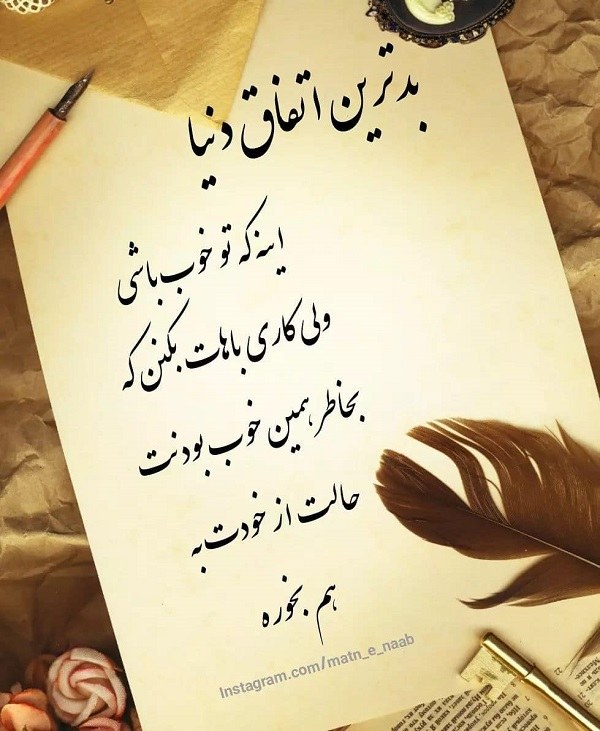 بدترین اتفاق دنیا
اینه که تو خوب باشی
ولی کاری باهات بکنن که
بخاطر همین خوب بودنت
حالت از خودت به
هم بخوره
Instagram.com/matn_e_naab